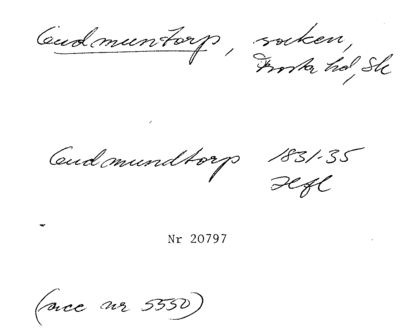 Gudmuntorp, socken,
Frosta hd, Sk
Gudmundtorp 1831-35
Hfl
Nr 20797
(acc nr 5550)